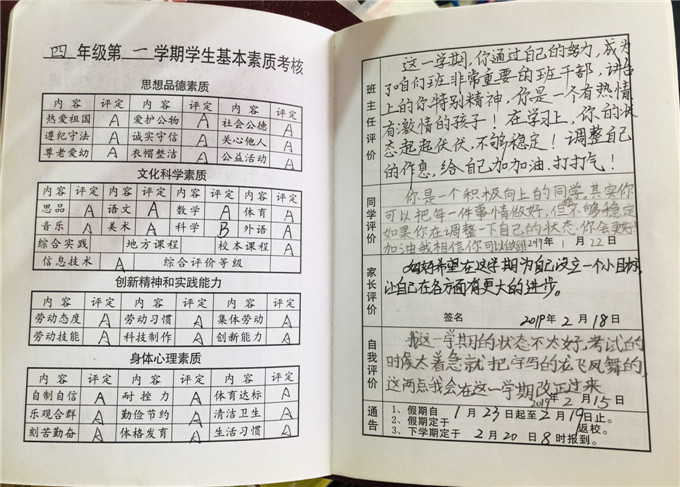 四年级第一学期学生基本素质考核
思想品德素质
内容 评定 内容 评定 内容 评定
热爱祖国 A 爱护公物 A 社会公德 A
遵纪守法 A 诚实守信 A 关心他人 A
尊老爱幼 A 衣帽整洁 A 公益活动 A
文化科学素质
内容 评定 内容 评定 内容 评定 内容 评定
思品 A 语文 A 数学 A 体育 A
音乐 A 美术 A 科学 B 外语 A
综合实践 地方课程 校本课程 A
信息技术 A 综合评价等级
创新精神和实践能力
内容 评定 内容 评定 内容 评定
劳动态度 A 劳动习惯 A 集体劳动 A
劳动技能 A 科技制作 A 创新能力 A
身体心理素质
内容 评定 内容 评定 内容 评定
自制自信 A 耐挫力 A 体育达标 A
乐观合群 A 勤俭节约 A 清洁卫生 A
刻苦勤奋 A 体格发育 A 生活习惯 A
班主任评价
这一学期,你通过自己的努力,成为
了咱们班非常重要的班干部,讲台
上的你特别精神,你是一个有热情
有激情的孩子!在学习上,你的状
态起起伏伏,不够稳定!调整自己
的作息,给自己加加油,打打气!
同学评价
你是一个积极向上的同学。其实你
可以把每一件事情做好,但不够稳定
如果你在调整一下自己的状态.你会更好
加油我相信你可以做到 2019年1月22日
家长评价
希望在这学期为自己设立一个小目标,
让自己在各方面有更大的进步。
签名 2019年2月18日
自我评价
我这一学期的状态不太好,考试的
时候太着急就把字写的龙飞凤舞的,
这两点我会在这一学期改正过来
2019年2月15日
通告
1、假期自1月23日起至2月19日止。
2、假期定于 返校。
3、下学期定于2月20日8时报到。